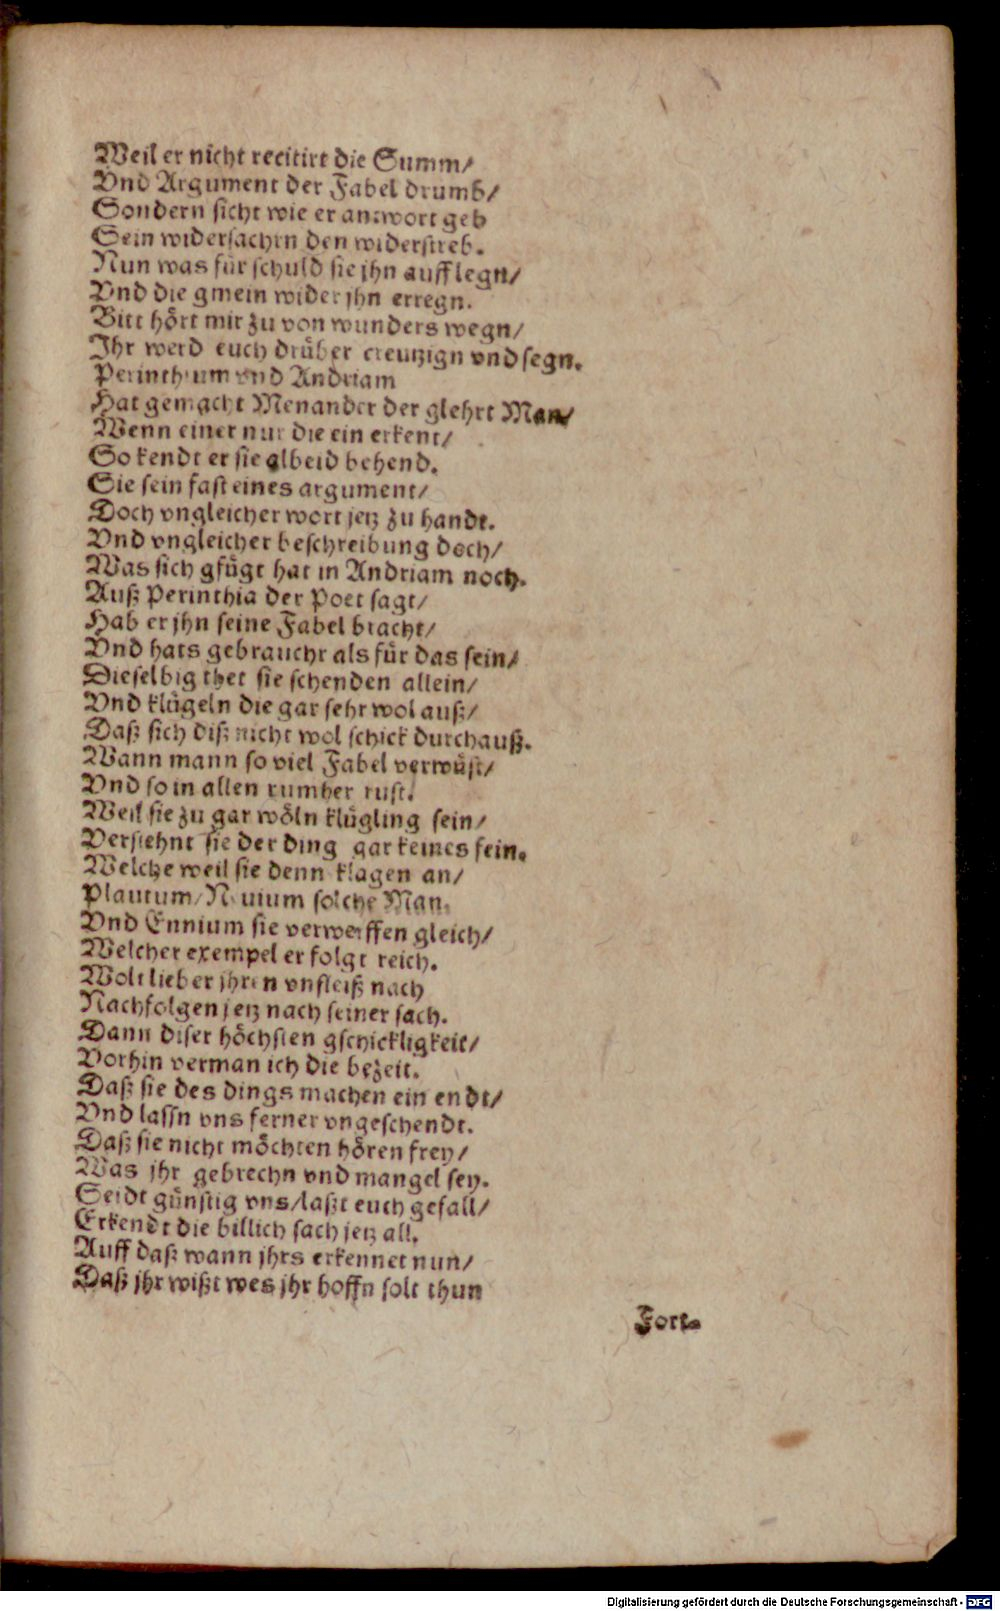 Weil er nicht recitirt die Summ/
Vnd Argument der Fabel drumb/
Sondern sicht wie er antwort geb
Sein widersachrn den widerstreb.
Nun was für schuld sie jhn auff legn/
Vnd die gmein wider jhn erregn.
Bitt hört mir zu von wunders wegn/
Ihr werd euch drüber creutzign vnd segn.
Perinthium vnd Andriam
Hat gemacht Menander der glehrt Man/
Wenn einer nur die ein erkent/
So kendt er sie albeid behend.
Sie sein fast eines argument/
Doch vngleicher wort jetz zu handt.
Vnd vngleicher beschreibung doch/
Was sich gfügt hat in Andriam noch.
Auß Perinthia der Poet sagt/
Hab er jhn seine Fabel bracht/
Vnd hats gebraucht als für das sein/
Dieselbig thet sie schenden allein/
Vnd klügeln die gar sehr wol auß/
Daß sich diß nicht wol schick durchauß.
Wann mann so viel Fabel verwüst/
Vnd so in allen rumher rust.
Weil sie zu gar wöln klügling sein/
Verstehnt sie der ding gar keines fein.
Welche weil sie denn klagen an/
Plautum/ Neuium solche Man.
Vnd Ennium sie verwerffen gleich/
Welcher exempel er folgt reich.
Wolt lieber jhren vnfleiß nach
Nachfolgen jetz nach seiner sach.
Dann diser höchsten gschickligkeit/
Vorhin verman ich die bezeit.
Daß sie des dings machen ein endt/
Vnd lassn vns ferner vngeschendt.
Daß sie nicht möchten hören frey/
Was jhr gebrechn vnd mangel sey.
Seidt günstig vns/laßt euch gefall/
Erkendt die billich sach jetz all.
Auff daß wann jhrs erkennet nun/
Daß jhr wißt wes jhr hoffn solt thun
Fort-
Digitalisierung gefördert durch die Deutsche Forschungsgemeinschaft - DFG